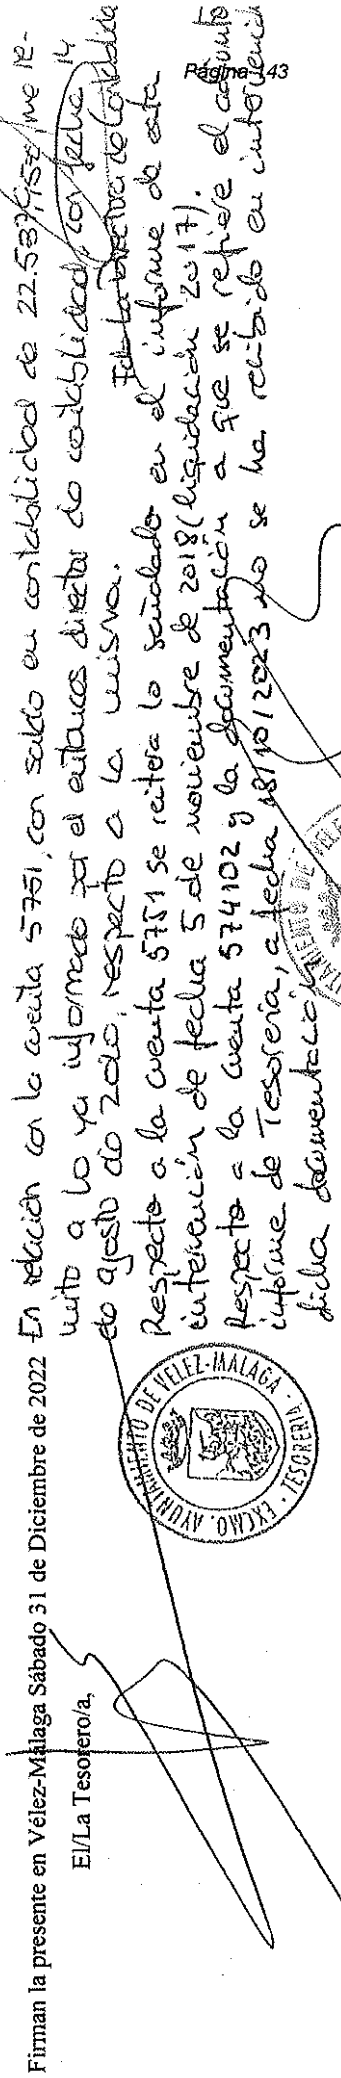 Página 143
Firman la presente en Vélez-Málaga Sábado 31 de Diciembre de 2022
El/La Tesorero/a,
EXCMO. AYUNTAMIENTO DE VELEZ-MALAGA · TESORERIA
En relación con la cuenta 5751, con saldo en contabilidad de me re-
mito a lo ya informado por el entonces director de contabilidad con fecha 14
de agosto de 2020, respecto a la misma.
Respecto a la cuenta 5751 se reitera lo señalado en el informe de esta
intervención de fecha 5 de noviembre de 2018 (liquidación 2017).
Respecto a la cuenta 574102 y la documentación a que se refiere el adjunto
informe de Tesorería, a fecha 18/10/2023 no se ha recibido en intervención
dicha documentación